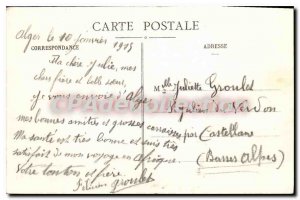 CARTE POSTALE
Alger le 10 Janvier 1905
CORRESPONDANCE
ADRESSE
Ma chère Julie, mes
chers frère et belle sœur,
je vous envoie d'Alger
mes bonnes amitiés et grosses caresses
Ma santé est très bonne et suis très
satisfait de mon voyage en Afrique.
Votre tonton et frère
Groulet
Mlle Juliette Groulet
St Julien de Verdon
par Castellane
(Basses Alpes)